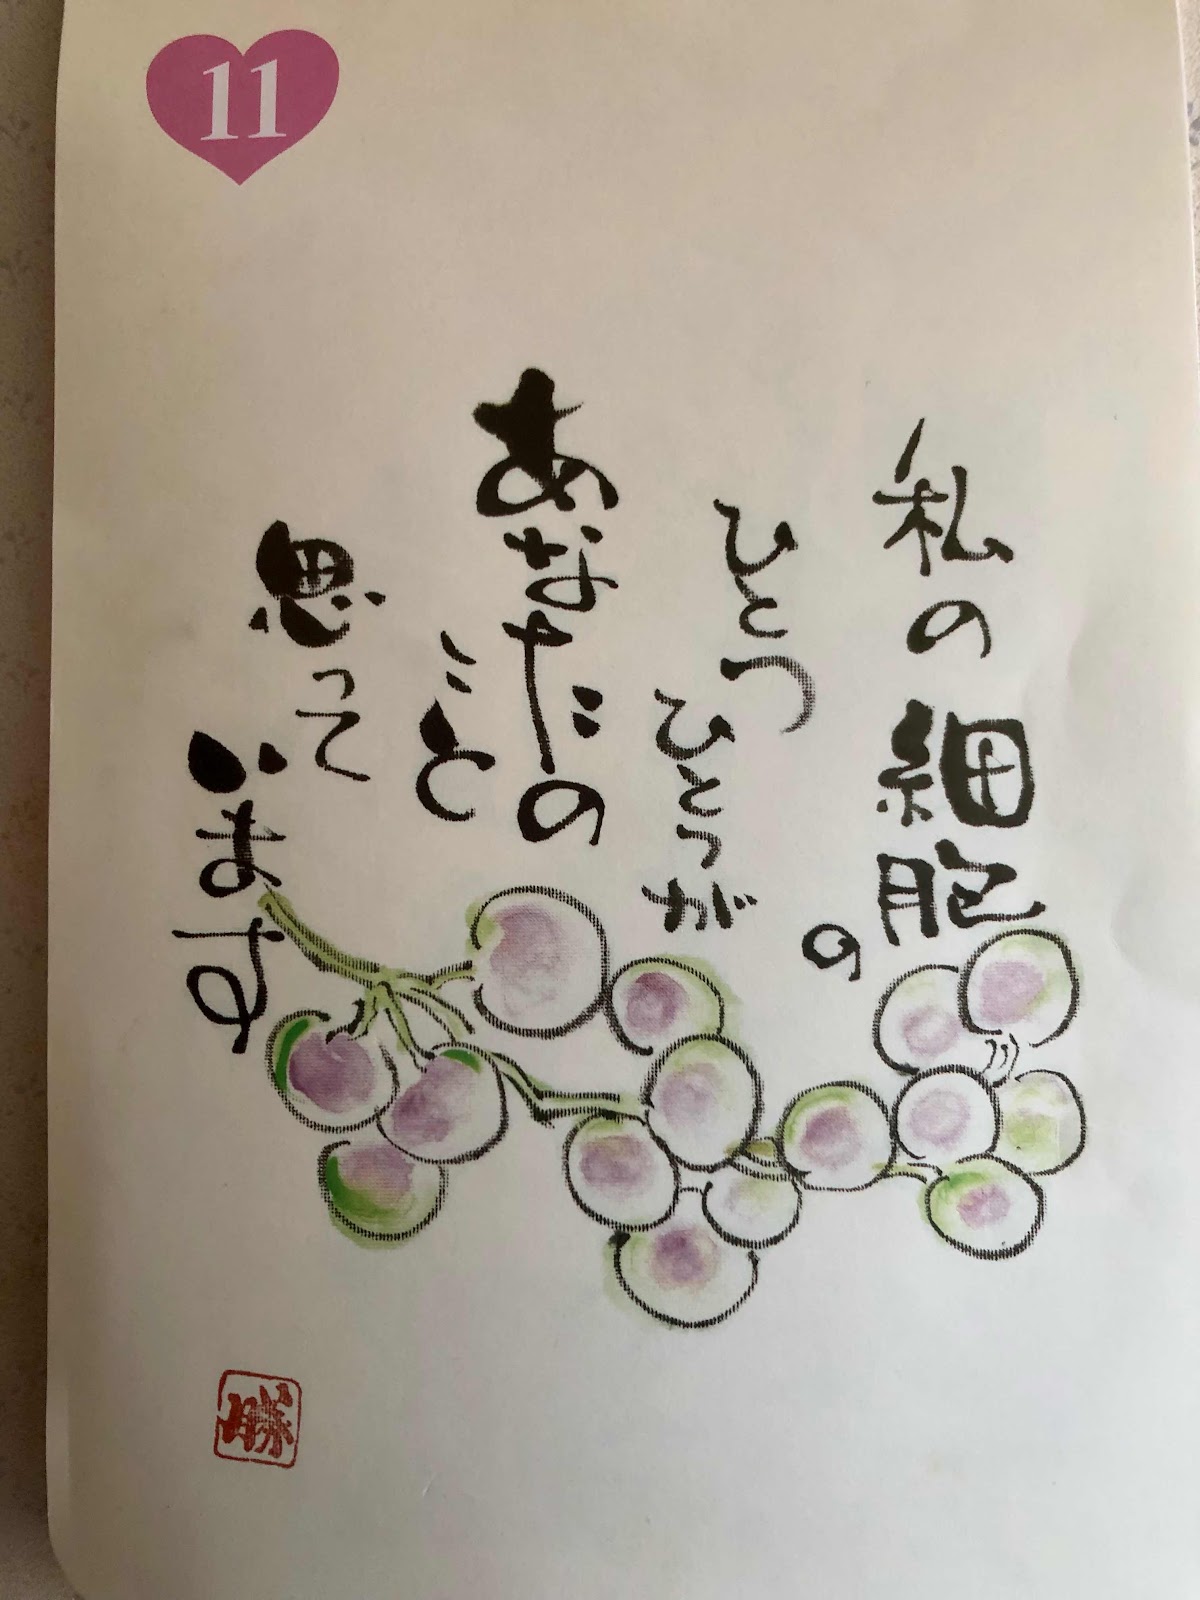 11
私の細胞の
ひとつ
ひとつが
あなたの
こと
思って
います
勝